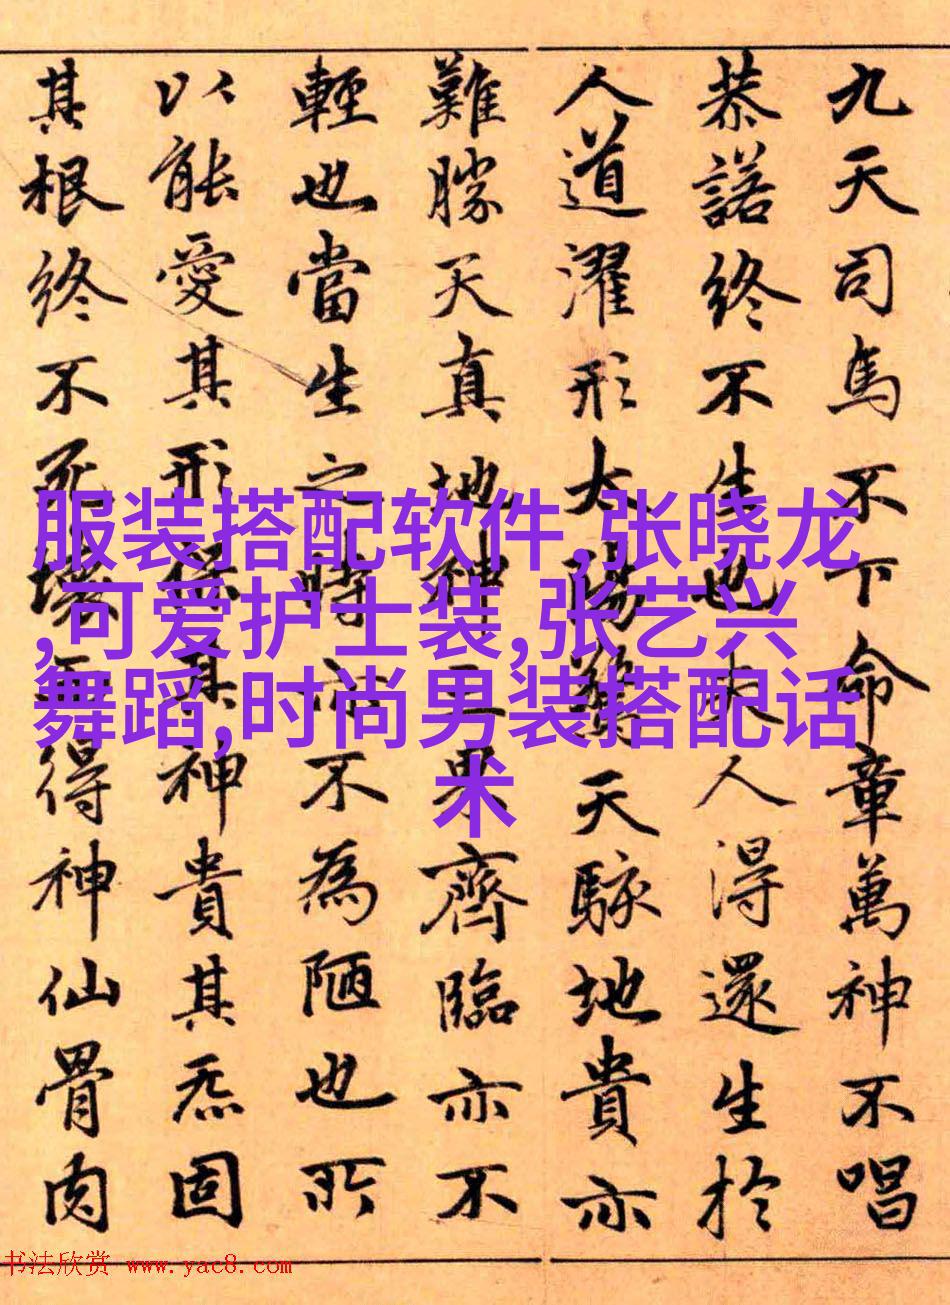 九天司馬不下命章萬神不唱
恭諾終不生也夫人得還生於
人道濯形太陽驚天駭地貴亦
難勝天真地神三界齊臨亦不
輕也當生之時亦不為陋也所
以能愛其形保其神貴其炁固
其根終不死壞而得神仙骨肉
服装搭配软件,张晓龙
,可爱护士装,张艺兴
舞蹈,时尚男装搭配话
术
书法欣赏 www.yac8.com